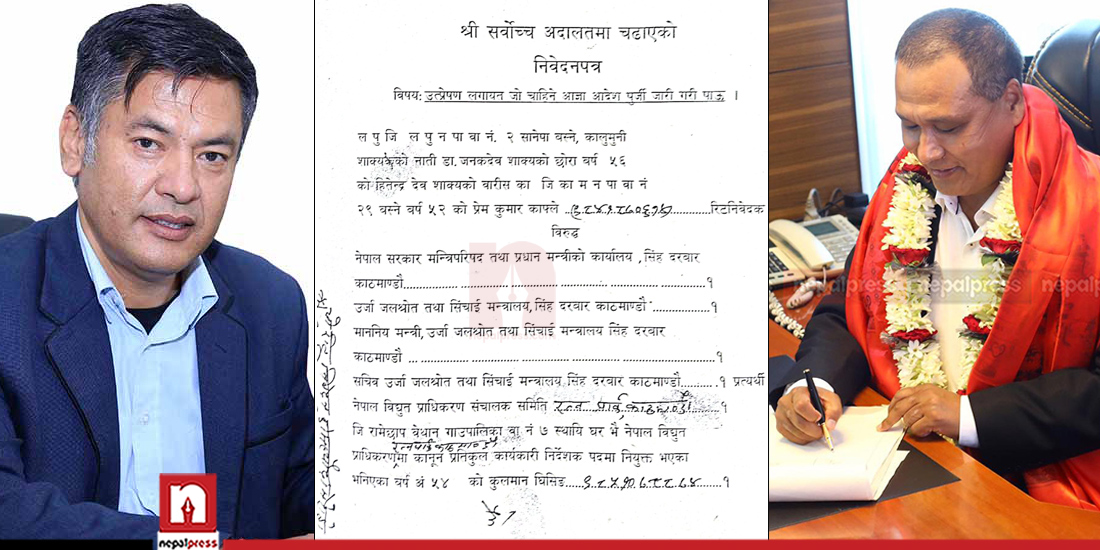 श्री सर्वोच्च अदालतमा चढाएको
निवेदनपत्र
विषय: उत्प्रेषण लगायत जो चाहिने आज्ञा आदेश पुर्जी जारी गरी पाऊ ।
ल पु जि ल पु न पा वा नं. २ सानेपा बस्ने, कालुमुनी
शाक्यकेको नाती डा.जनकदेव शाक्यको छोरा बर्ष ५६
को हितेन्द्र देव शाक्यको वारीस का जि का म न पा वा नं
२९ बस्ने बर्ष ५२ को प्रेम कुमार काफ्ले ..................रिटनिवेदक
विरुद्ध
नेपाल सरकार मन्त्रिपरिषद तथा प्रधान मन्त्रीको कार्यालय ,सिंह दरबार
काठमाण्डौ...................................................१
उर्जा जलश्रोत तथा सिंचाई मन्त्रालय,सिंह दरबार काठमाण्डौ ................१
माननिय मन्त्री,उर्जा जलश्रोत तथा सिंचाई मन्त्रालय सिंह दरबार
काठमाण्डौ ...................................................१
सचिव उर्जा जलश्रोत तथा सिंचाई मन्त्रालय,सिंह दरबार काठमाण्डौ..........१ प्रत्यर्थी
नेपाल विद्युत प्राधिकरण संचालक समिति रत्न पार्क, काठमाण्डौ.........१
जि रामेछाप बेथान गाउपालिका वा नं ७ स्थायि घर भै नेपाल विद्युत
प्राधिकरणमा कानून प्रतिकुल कार्यकारी निर्देशक पदमा नियुक्त भएका
भनिएका बर्ष अं ५४ को कुलमान घिसिङ..................१
n
nepalpress
nepalpress
nepalpress